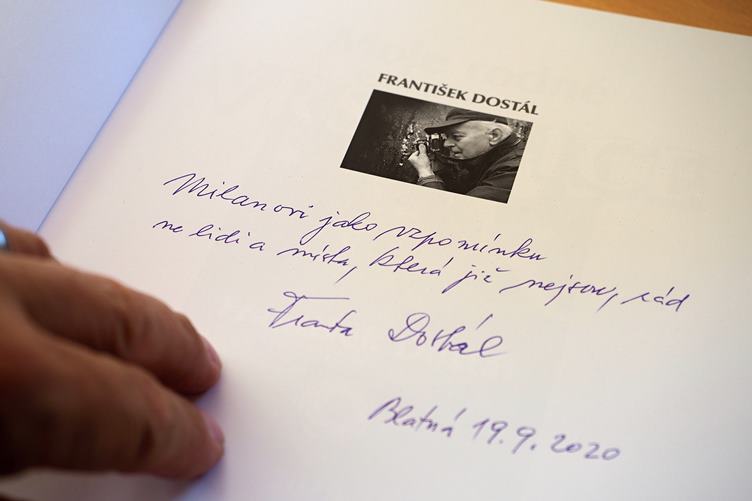 FRANTIŠEK DOSTÁL
Milanovi jako vzpomínku
na lidi a místa, která již nejsou, rád
Franta Dostál
Blatná 19.9.2020